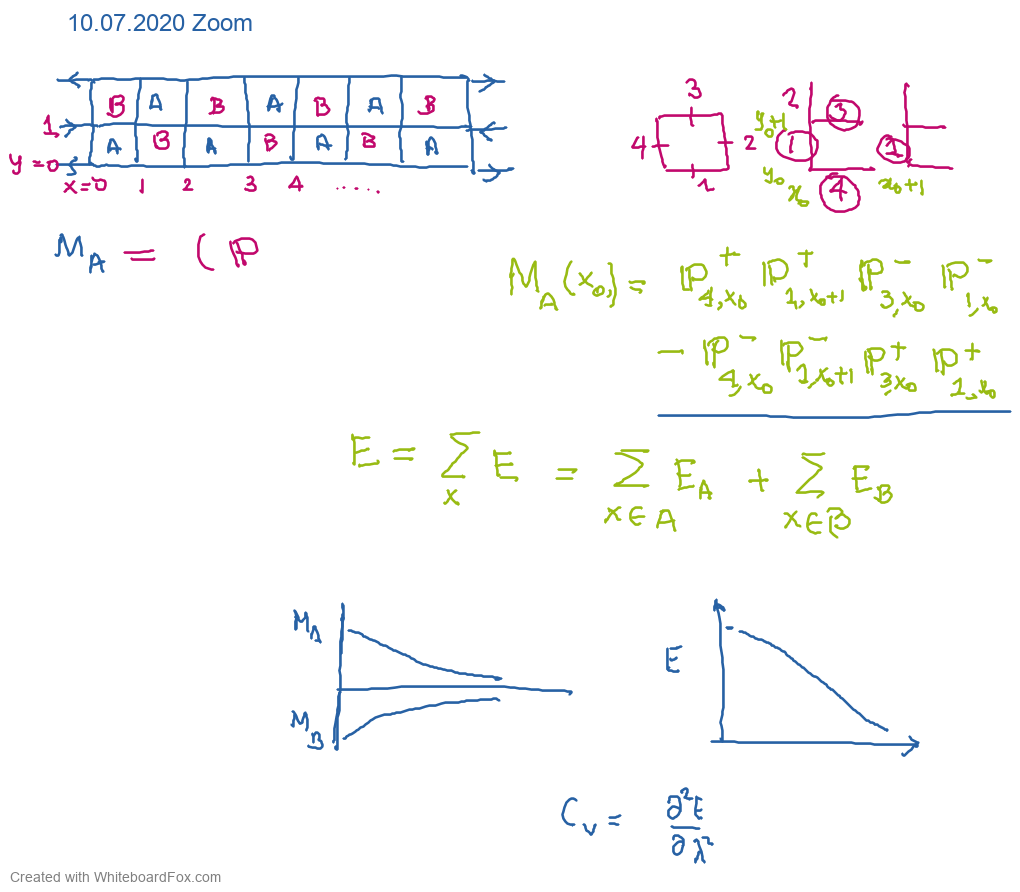 10.07.2020 Zoom
B A B A B A B
1
A B A B A B A
y = 0
x = 0 1 2 3 4 .....
3
4 2
1
2 3
y₀+1
1 1
y₀
x₀ 4 x₀+1
M_A = ( ℙ
M_A(x₀,) = ℙ⁺_{4,x₀} ℙ⁺_{1,x₀+1} ℙ⁻_{3,x₀} ℙ⁻_{1,x₀}
− ℙ⁻_{4,x₀} ℙ⁻_{1,x₀+1} ℙ⁺_{3,x₀} ℙ⁺_{1,x₀}
E = ∑_x E = ∑_{x∈A} E_A + ∑_{x∈B} E_B
M_A
M_B
E
C_v = ∂²E/∂λ²
Created with WhiteboardFox.com